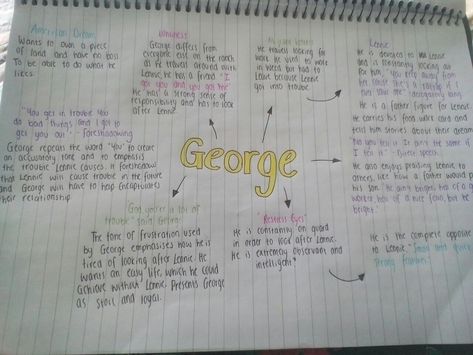 American Dream
Wants to own a piece
of land and have no boss
To be able to do what he
likes.
Uniqueness
George differs from
everyone else on the ranch
as he travels around with
Lennie, he has a friend. "I
got you and you got me"
He has a strong sense of
responsibility and has to look
after Lennie.
He travels looking for
work. He used to work
in Weed but had to
leave because Lennie
got into trouble
Lennie
He is devoted to Lennie
and is constantly looking out
for him.
He is a father figure for Lennie
He carries his food, work card and
tell him stories about their dream
"No you tell it. It ain't the same if
I tell it." - Direct speech.
He also enjoys praising Lennie to
others, like how a father would praise
his son. "He ain't bright. Hell of a
worker, hell of a nice fella, but he ain't
bright."
"You get in trouble. You
do bad things and I got to
get you out" - Foreshadowing
George repeats the word "You" to create
an accusatory tone and to emphasis
the trouble Lennie causes. It foreshadows
that Lennie will cause trouble in the future
and George will have to help. Encapsulates
their relationship.
George
"God you're a lot of
trouble" said George.
The tone of frustration used
by George emphasises how he is
tired of looking after Lennie. He
wants an easy life, which he could
achieve without Lennie. Presents George
as stoic and loyal.
"Restless Eyes"
He is constantly on guard
in order to look after Lennie.
He is extremely observant and
intelligent?
He is the complete opposite
to Lennie. "Small and quick"
"Strong features"